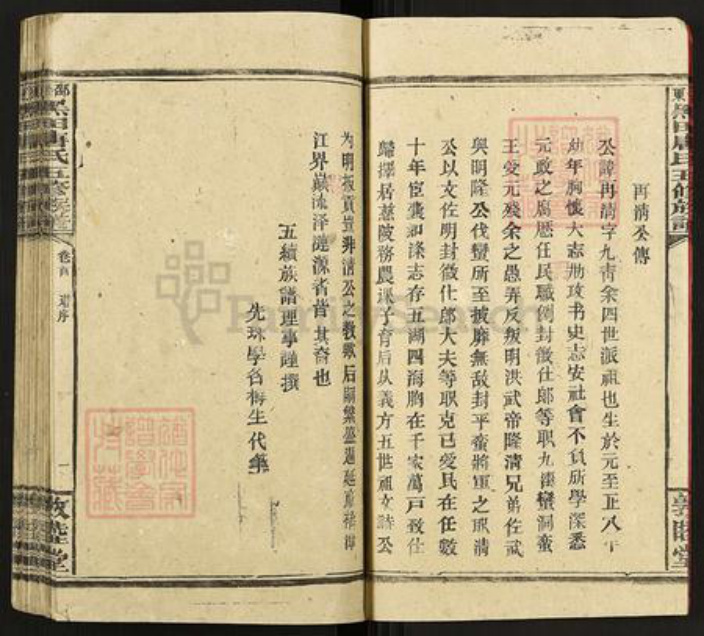 再清公傳
公諱再清字九青余四世派祖也生於元至正八年
幼年胸懷大志勤攻书史志安社會不負所學深悉
元政之腐歷任民職例封徵仕郎等职九溪蠻洞蛮
王受元残余之愚弄反叛明洪武帝隆清兄弟佐武
與明隆公伐蠻所至披靡無敌封平蛮將軍之职清
公以文佐明封徵仕郎大夫等職克己爱民在任数
十年宦囊如涤志存五湖四海胸在千家萬戸致仕
歸擇居慈陂務農课子育后以義方五世祖文時公
为明拔貢豈非清公之教歟后嗣繁盛
江界巔流泽涟源省皆其裔也
五續族譜理事謹撰
先珠學名梅生代筆
東
唐氏五修族譜
敦睦堂
邵
黑田唐氏五修族譜
卷首
敦睦堂
FamilySearch